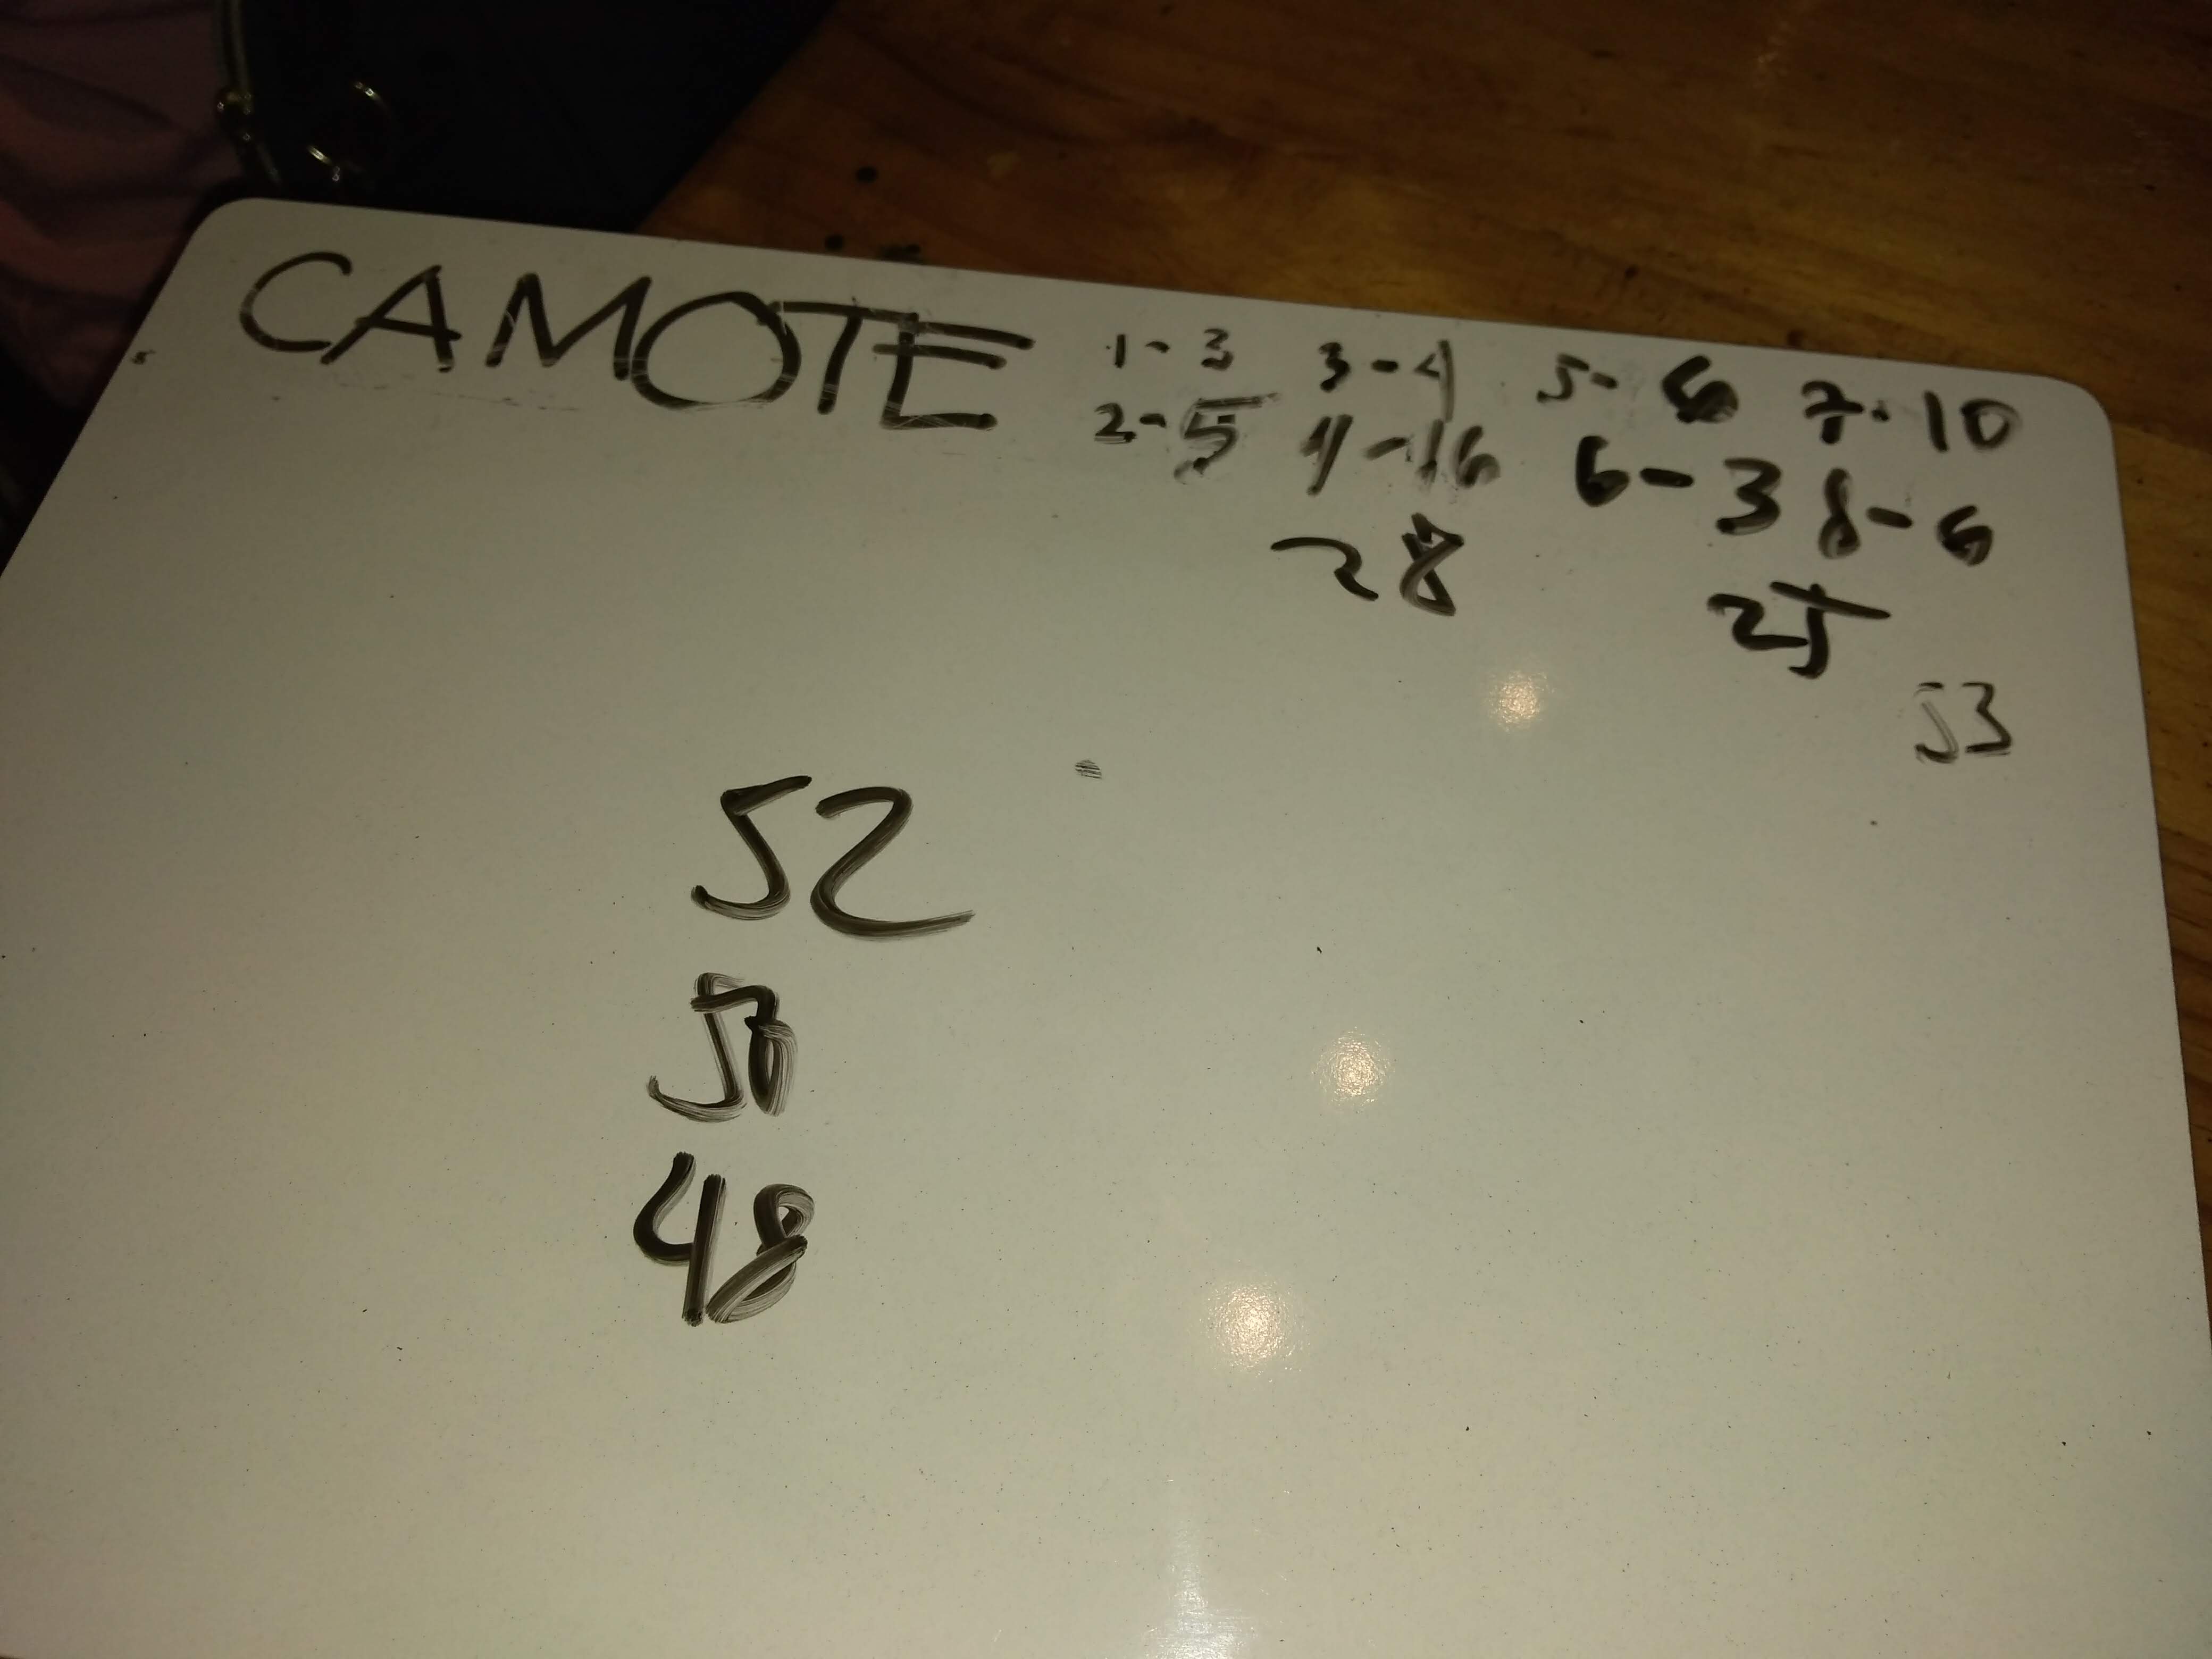 CAMOTE 1-3 3-4 5-6 7-10
2-5 4-16 6-3 8-6
28 25
53
52
50
48